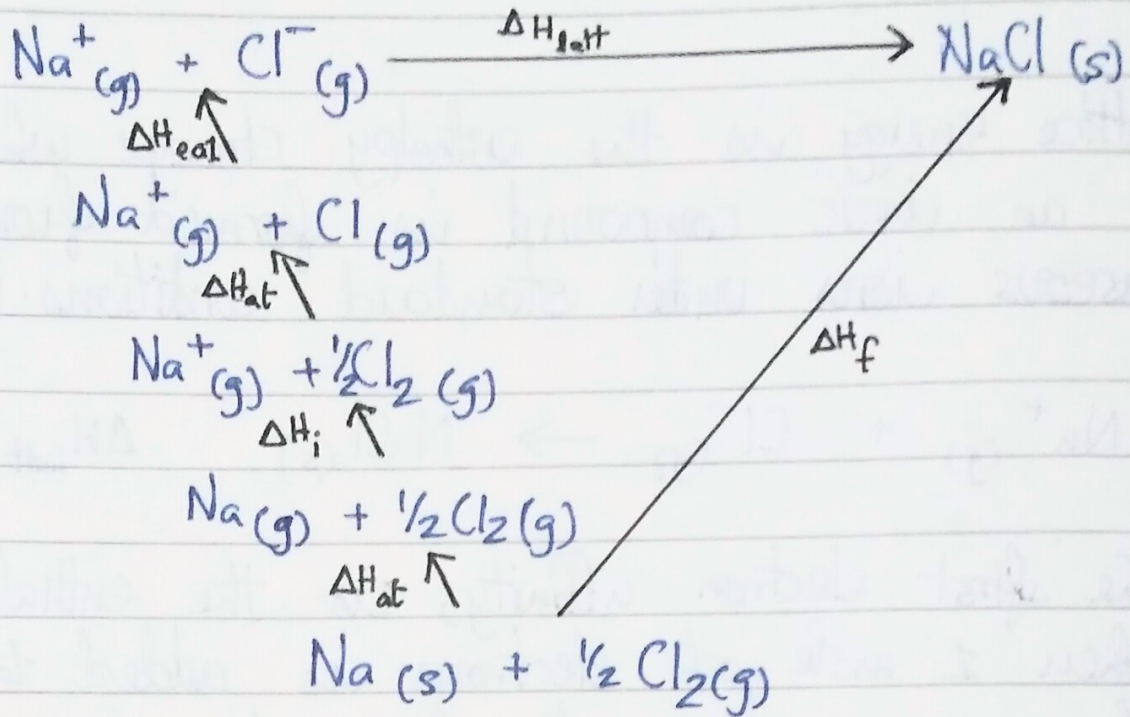 Na⁺(g) + Cl⁻(g) ΔHlatt NaCl (s)
ΔHea1
Na⁺(g) + Cl(g)
ΔHat
Na⁺(g) + ½Cl₂ (g)
ΔHf
ΔHi
Na(g) + ½Cl₂(g)
ΔHat
Na (s) + ½ Cl₂(g)